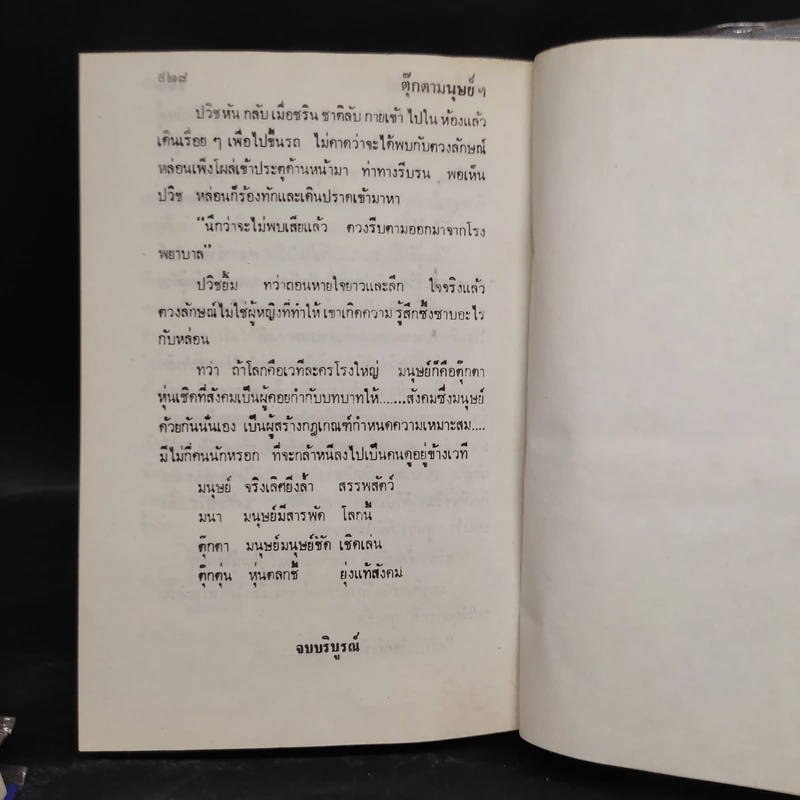 ๙๒๘ ตุ๊กตามนุษย์ ๆ
ปวิชหัน กลับ เมื่อชริน ชาติลับ กายเข้า ไปใน ห้องแล้ว
เดินเรื่อย ๆ เพื่อไปขึ้นรถ ไม่คาดว่าจะได้พบกับดวงลักษณ์
หล่อนเพิ่งโผล่เข้าประตูด้านหน้ามา ท่าทางรีบรน พอเห็น
ปวิช หล่อนก็ร้องทักและเดินปราดเข้ามาหา
“นึกว่าจะไม่พบเสียแล้ว ดวงรีบตามออกมาจากโรง
พยาบาล”
ปวิชยิ้ม ทว่าถอนหายใจยาวและลึก ใจจริงแล้ว
ดวงลักษณ์ไม่ใช่ผู้หญิงที่ทำให้ เขาเกิดความ รู้สึกซึ้งซาบอะไร
กับหล่อน
ทว่า ถ้าโลกคือเวทีละครโรงใหญ่ มนุษย์ก็คือตุ๊กตา
หุ่นเชิดที่สังคมเป็นผู้คอยกำกับบทบาทให้.......สังคมซึ่งมนุษย์
ด้วยกันนั่นเอง เป็นผู้สร้างกฎเกณฑ์กำหนดความเหมาะสม....
มีไม่กี่คนนักหรอก ที่จะกล้าหนีลงไปเป็นคนดูอยู่ข้างเวที
มนุษย์ จริงเลิศยิ่งล้ำ สรรพสัตว์
มนา มนุษย์มีสารพัด โลกนี้
ตุ๊กตา มนุษย์มนุษย์ชัด เชิดเล่น
ตุ๊กตุ่น หุ่นตลกชี้ ยุ่งแท้สังคม
จบบริบูรณ์